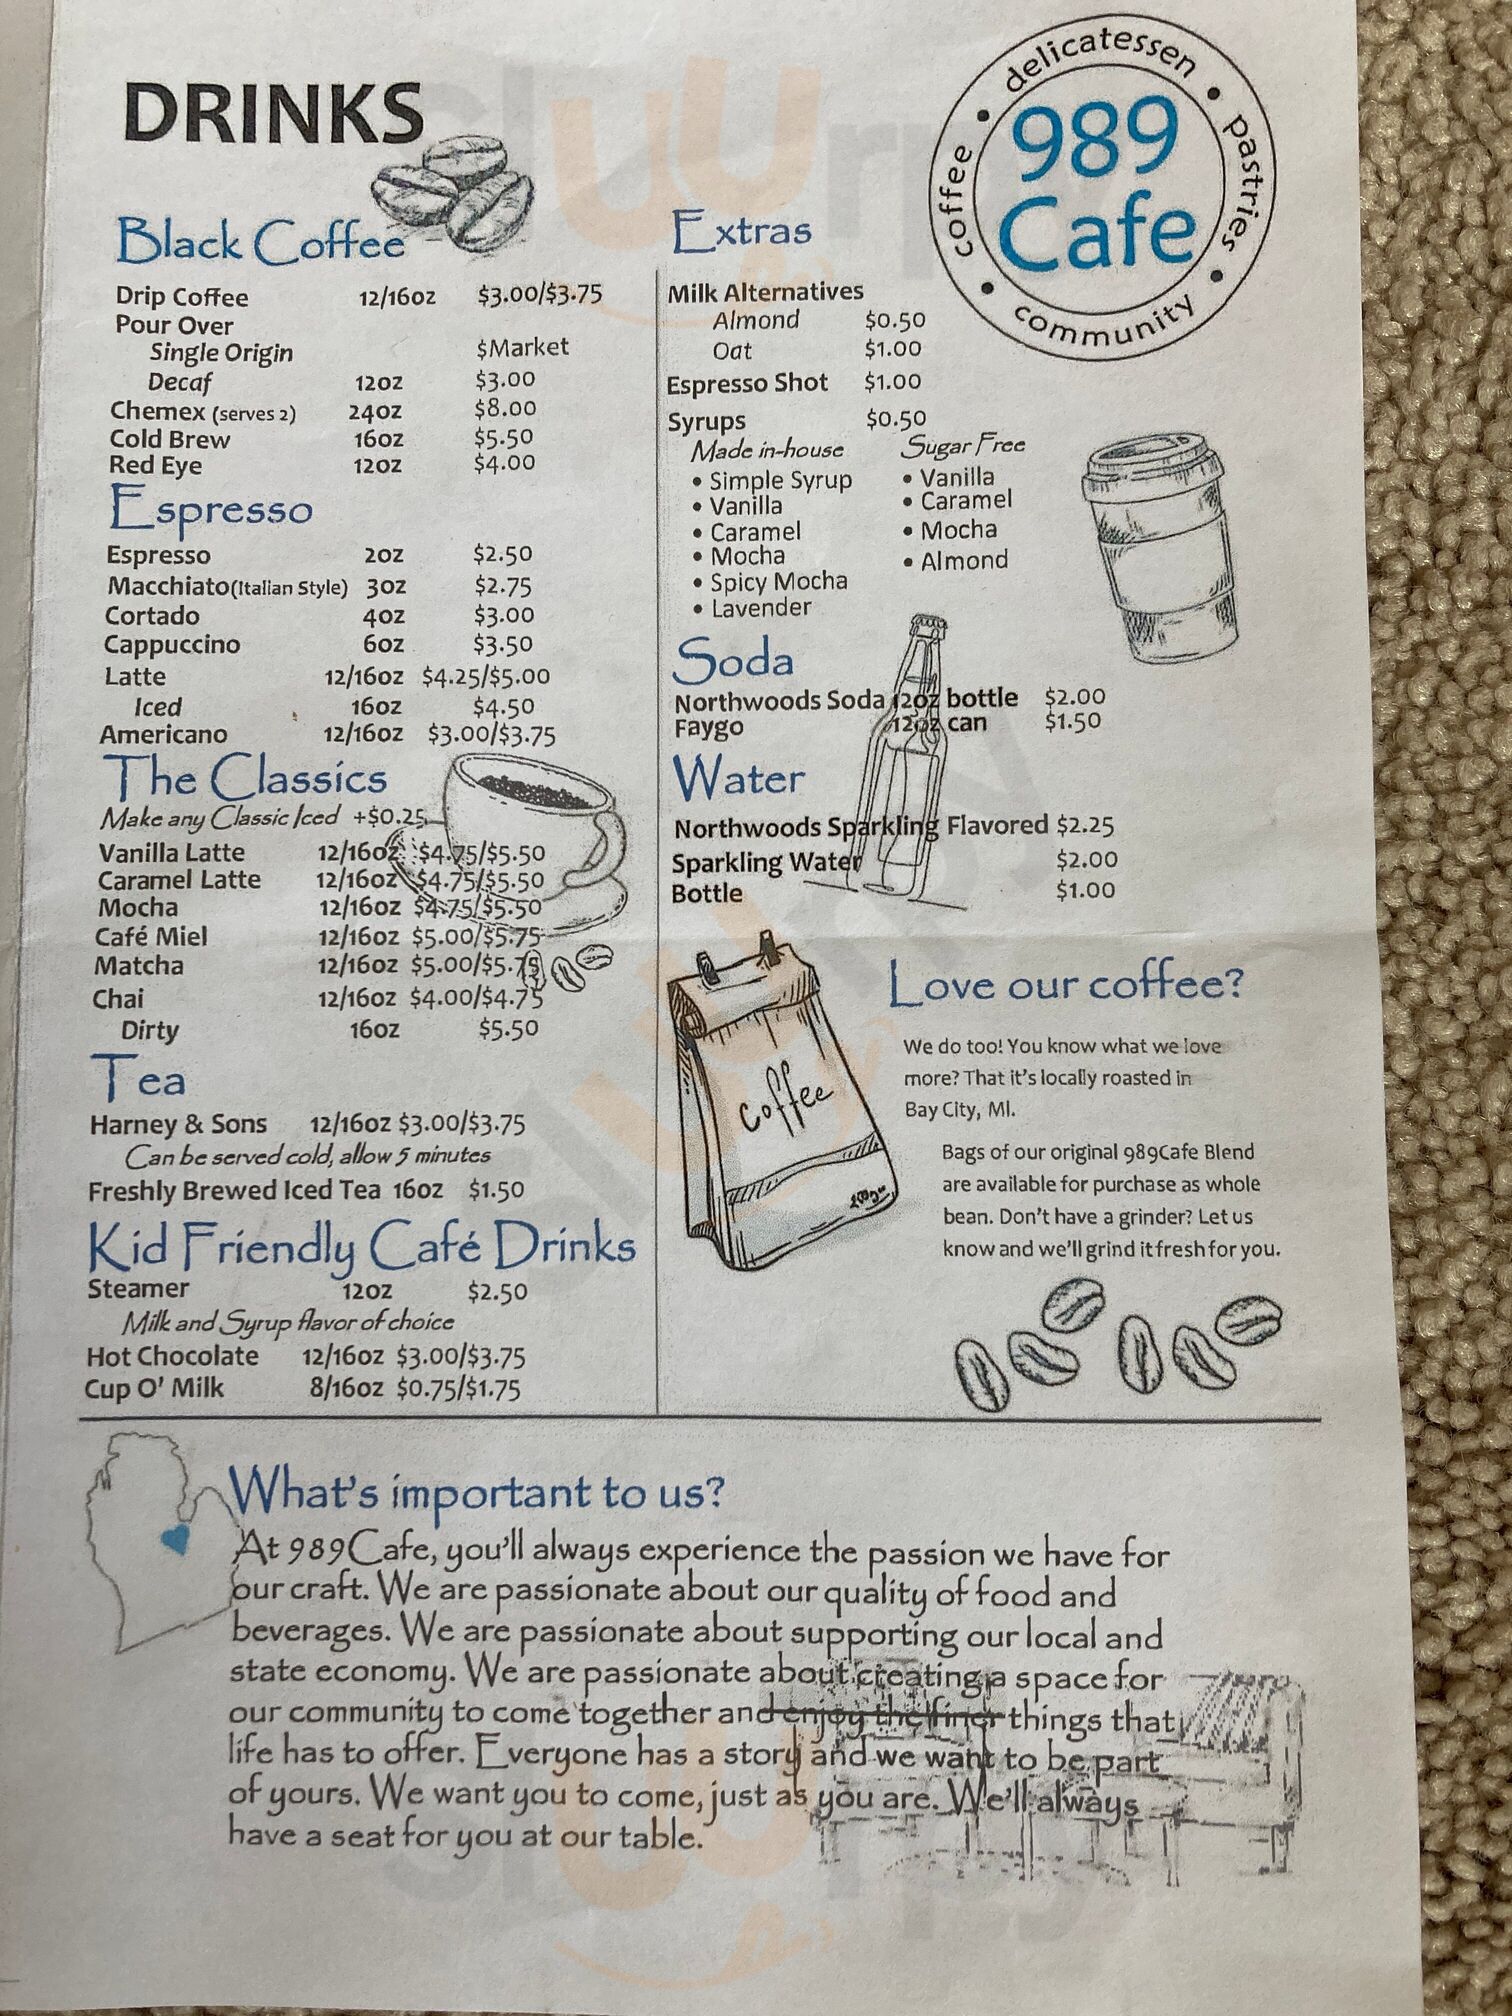 DRINKS
delicatessen • pastries • community • coffee •
989
Cafe
Black Coffee
Drip Coffee 12/16oz $3.00/$3.75
Pour Over
Single Origin $Market
Decaf 12oz $3.00
Chemex (serves 2) 24oz $8.00
Cold Brew 16oz $5.50
Red Eye 12oz $4.00
Espresso
Espresso 2oz $2.50
Macchiato(Italian Style) 3oz $2.75
Cortado 4oz $3.00
Cappuccino 6oz $3.50
Latte 12/16oz $4.25/$5.00
Iced 16oz $4.50
Americano 12/16oz $3.00/$3.75
The Classics
Make any Classic Iced +$0.25
Vanilla Latte 12/16oz $4.75/$5.50
Caramel Latte 12/16oz $4.75/$5.50
Mocha 12/16oz $4.75/$5.50
Café Miel 12/16oz $5.00/$5.75
Matcha 12/16oz $5.00/$5.75
Chai 12/16oz $4.00/$4.75
Dirty 16oz $5.50
Tea
Harney & Sons 12/16oz $3.00/$3.75
Can be served cold, allow 5 minutes
Freshly Brewed Iced Tea 16oz $1.50
Kid Friendly Café Drinks
Steamer 12oz $2.50
Milk and Syrup flavor of choice
Hot Chocolate 12/16oz $3.00/$3.75
Cup O' Milk 8/16oz $0.75/$1.75
Extras
Milk Alternatives
Almond $0.50
Oat $1.00
Espresso Shot $1.00
Syrups $0.50
Made in-house Sugar Free
• Simple Syrup • Vanilla
• Vanilla • Caramel
• Caramel • Mocha
• Mocha • Almond
• Spicy Mocha
• Lavender
Soda
Northwoods Soda 12oz bottle $2.00
Faygo 12oz can $1.50
Water
Northwoods Sparkling Flavored $2.25
Sparkling Water $2.00
Bottle $1.00
coffee
Love our coffee?
We do too! You know what we love
more? That it's locally roasted in
Bay City, MI.
Bags of our original 989Cafe Blend
are available for purchase as whole
bean. Don't have a grinder? Let us
know and we'll grind it fresh for you.
What's important to us?
At 989Cafe, you'll always experience the passion we have for
our craft. We are passionate about our quality of food and
beverages. We are passionate about supporting our local and
state economy. We are passionate about creating a space for
our community to come together and enjoy the finer things that
life has to offer. Everyone has a story and we want to be part
of yours. We want you to come, just as you are. We'll always
have a seat for you at our table.